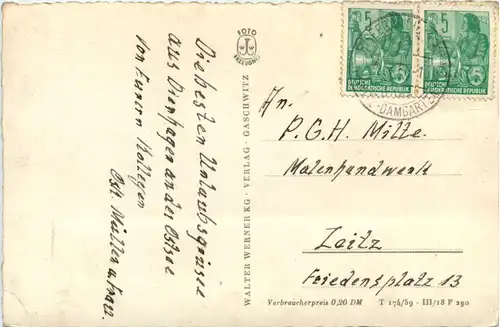 Die besten Urlaubsgrüsse
aus Dierhagen an der Ostsee
von Eurem Kollegen
FOTO
ERZEUGNIS
WALTER WERNER KG · VERLAG · GASCHWITZ
5
DEUTSCHE
DEMOKRATISCHE REPUBLIK
5
DEUTSCHE
DEMOKRATISCHE REPUBLIK
-DAMGARTEN
An.
P.G.H. Mitte.
Malerhandwerk
Zeitz
Friedensplatz 13
Verbraucherpreis 0,20 DM T 174/59 - III/18 F 290